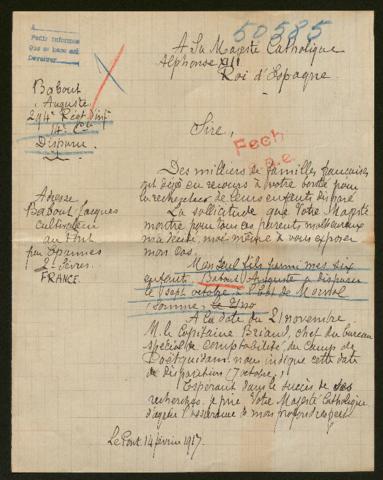 50585
A
Pedir informes
que se hace así
A Sa Majesté Catholique
Alphonse XIII
Roi d'Espagne
Babout
Auguste
294e Régt d'Inf
Disparu
Sire,
Fech
Adresse
Babout Jacques
cultivateur
au Pont
par
2 Sèvres
FRANCE.
Des milliers de familles françaises
ont déjà eu recours à votre bonté pour
la recherche de leurs enfants disparus
La sollicitude que Votre Majesté
montre pour tous ces parents malheureux
moi-même à vous exposer
mon cas.
Mon seul fils parmi mes six
enfants, Babout Auguste a disparu
le sept octobre
Somme
A la date du 21 novembre
M. le Capitaine Briand, chef du bureau
spécial de comptabilité du Camp de
Coëtquidan nous indique cette date
de disparition (7 octobre)
Espérant dans le succès de ses
recherches, je prie Votre Majesté Catholique
d'agréer l'assurance de mon profond respect
Le Pont, 14 février 1917